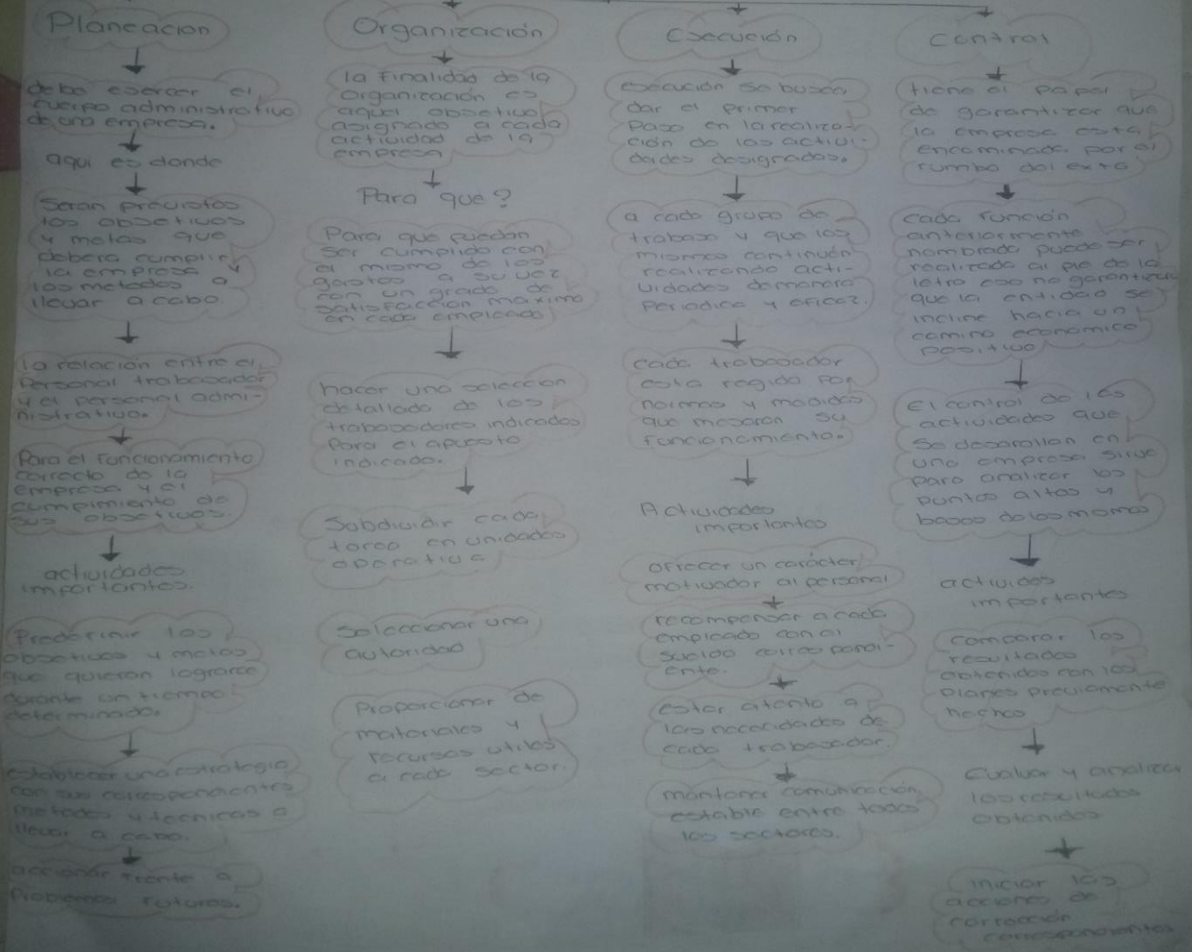 Planeacion
debe esercer el
cuerpo administrativo
de una empresa.
aqui es donde
Seran previstos
los obsetivos
y metas que
debera cumplir
la empresa y
los metodos a
llevar a cabo.
la relación entre el
Personal trabasador
y el personal admi-
nistrativo.
Para el funcionamiento
correcto de la
empresa y el
cumplimiento de
sus obsetivos.
actividades
importantes.
Predefinir los
obsetivos y metas
que quieran lograrce
durante un tiempo
determinado.
establecer una estrategia
con sus correspondientes
metodos y tecnicas a
llevar a cabo.
accionar frente a
Problemas futuros.
Organización
la Finalidad de la
Organización es
aquel obsetivo
asignado a cada
actividad de la
empresa
Para que?
Para que puedan
ser cumplido con
el mismo de los
gastos a su vez
con un grado de
satisfacción maximo
en cada empleado
hacer una seleccion
detallada de los
trabasadores indicados
Para el apuesto
indicado.
Subdividir cada
tarea en unidades
operativa
Seleccionar una
autoridad
Proporcionar de
materiales y
recursos utiles
a cada sector.
Esecución
esecución se busca
dar el primer
Paso en la realiza-
ción de las activi-
dades designadas.
a cada grupo de
trabaso y que los
mismos continuén
realizando acti-
vidades de manera
Periodica y eficaz.
cada trabasador
esta regido por
normas y medidas
que mesoran su
funcionamiento.
Actividades
importantes
ofrecer un carácter
motivador al personal
recompensar a cada
empleado con el
sueldo correspondi-
ente.
estar atento a
las necesidades de
cada trabasador.
mantener comunicación
estable entre todos
los sectores.
Control
tiene el papel
de garantizar que
la empresa esta
encaminada por el
rumbo del exito
cada función
anteriormente
nombrada puede ser
realizada al pie de la
letra eso no garantiza
que la entidad se
incline hacia un
camino economico
positivo
El control de las
actividades que
se desarollan en
una empresa sirve
para analizar los
puntos altos y
basos de los mismos
actividos
importantes
comparar los
resultados
obtenidos con los
planes previamente
hechos
Evaluar y analizar
los resultados
obtenidos
iniciar las
acciones de
corrección
correspondientes